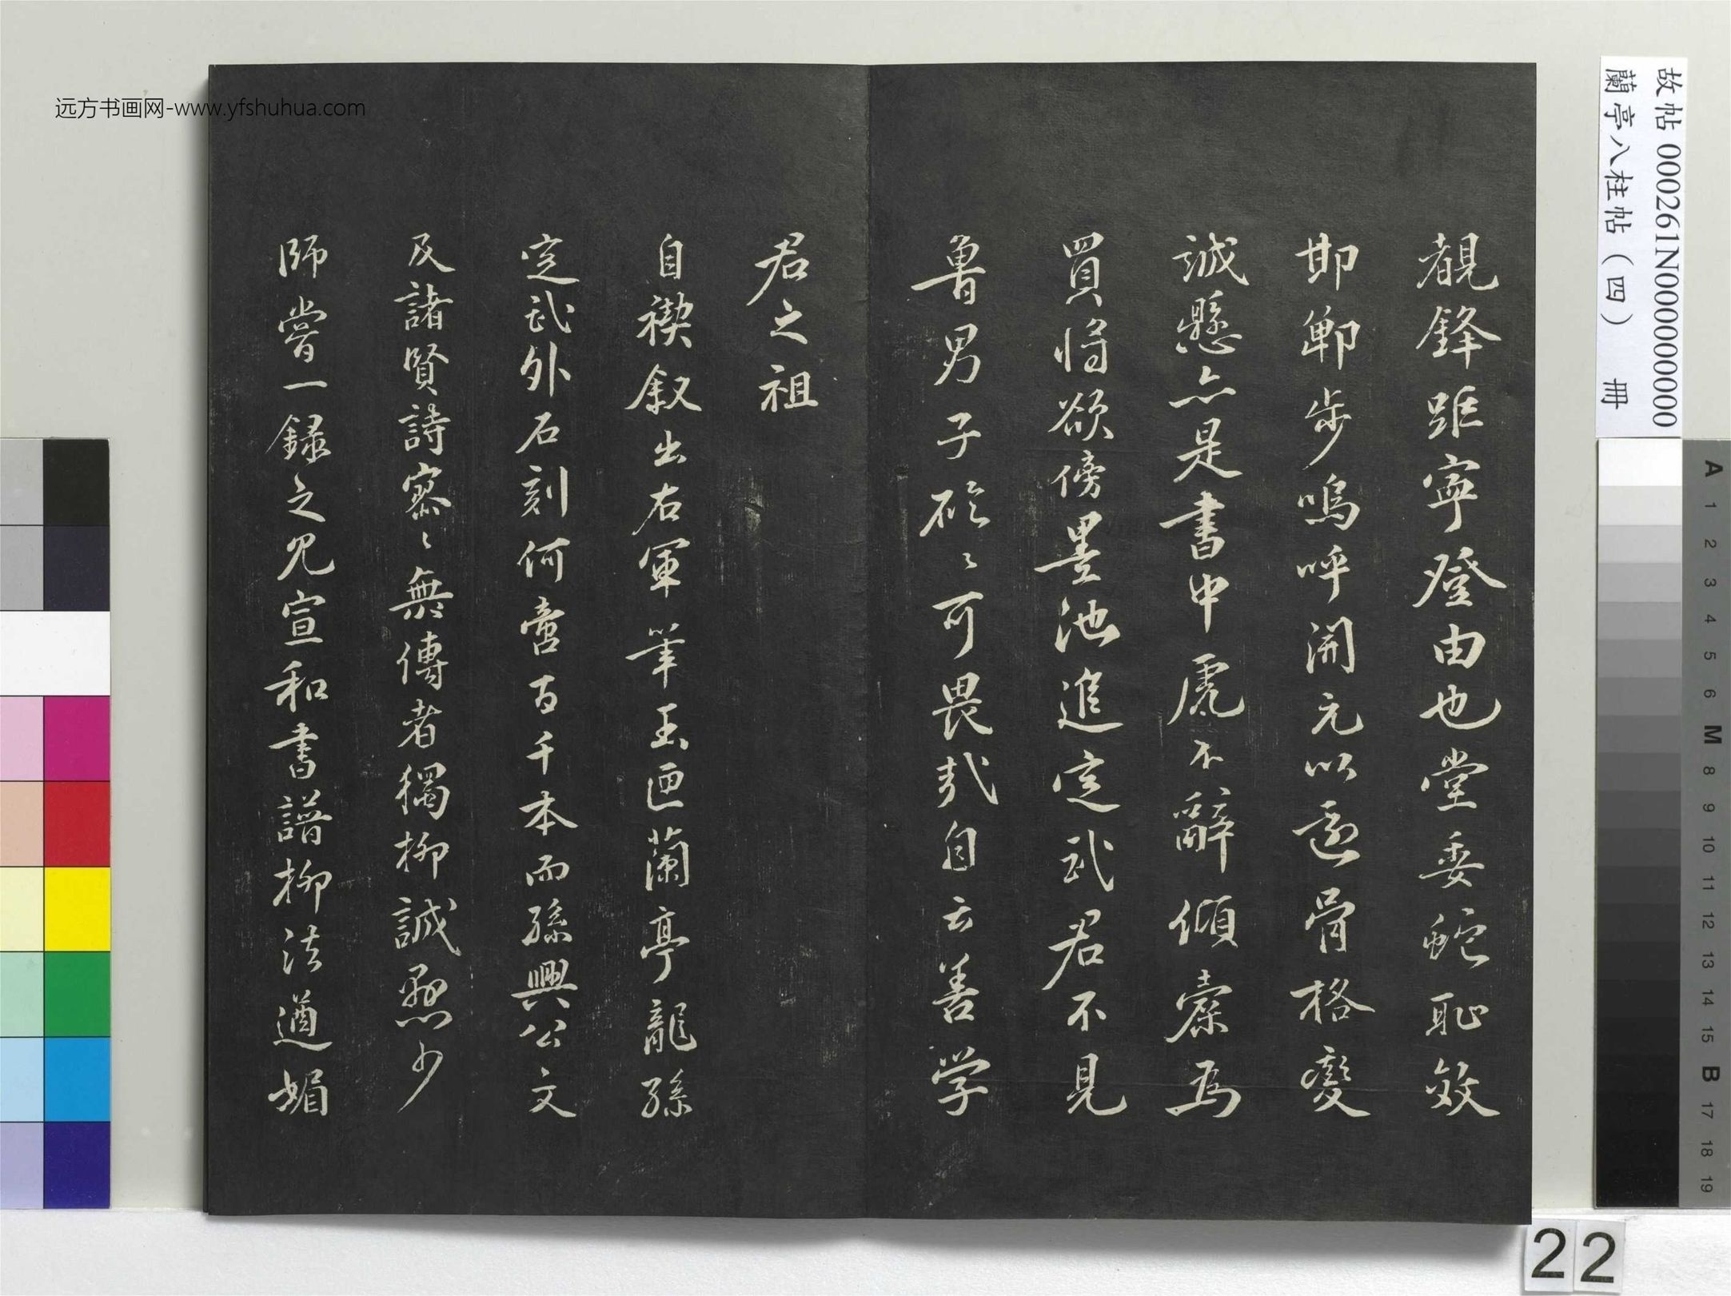 覩鋒距寧登由也堂委蛇恥效
邯鄲步嗚呼開元以還骨格變
誠懸亦是書中虎不辭傾橐為
買將欲傍墨池進定武君不見
魯男子硁〻可畏哉自云善學
君之祖
自禊敘出右軍筆玉匣蘭亭龍孫
定武外石刻何啻百千本而孫興公文
及諸賢詩寥〻無傳者獨柳誠懸少
師嘗一錄之見宣和書譜柳法遒媚
远方书画网-www.yfshuhua.com
故帖 000261N000000000
蘭亭八柱帖（四） 冊
A 1 2 3 4 5 6 M 8 9 10 11 12 13 14 15 B 17 18 19
22